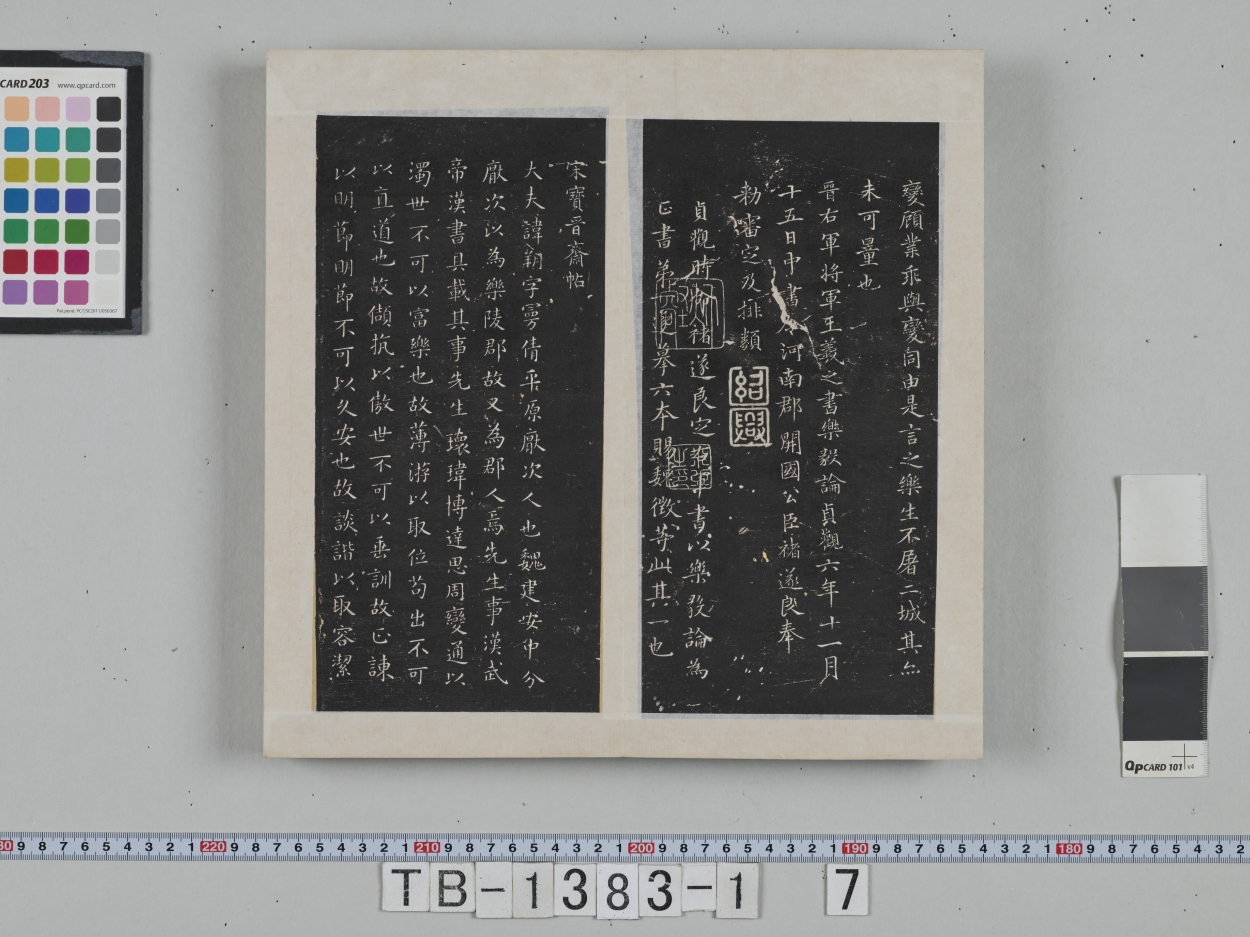 變顧業乖與變同由是言之樂生不屠二城其亦
未可量也
晉右軍將軍王羲之書樂毅論貞觀六年十一月
十五日中書令河南郡開國公臣褚遂良奉
勑審定及排類
紹興
貞觀時 褚遂良定右軍書以樂毅論為
正書第一 摹六本賜魏徵等此其一也
宋寶晉齋帖
大夫諱朔字曼倩平原厭次人也魏建安中分
厭次以為樂陵郡故又為郡人焉先生事漢武
帝漢書具載其事先生瓌瑋博達思周變通以
濁世不可以富樂也故薄游以取位苟出不可
以直道也故頡抗以傲世不可以垂訓故正諫
以明節明節不可以久安也故談諧以取容潔
CARD 203 www.qpcard.com
QPCARD 101 v4
TB-1383-1 7